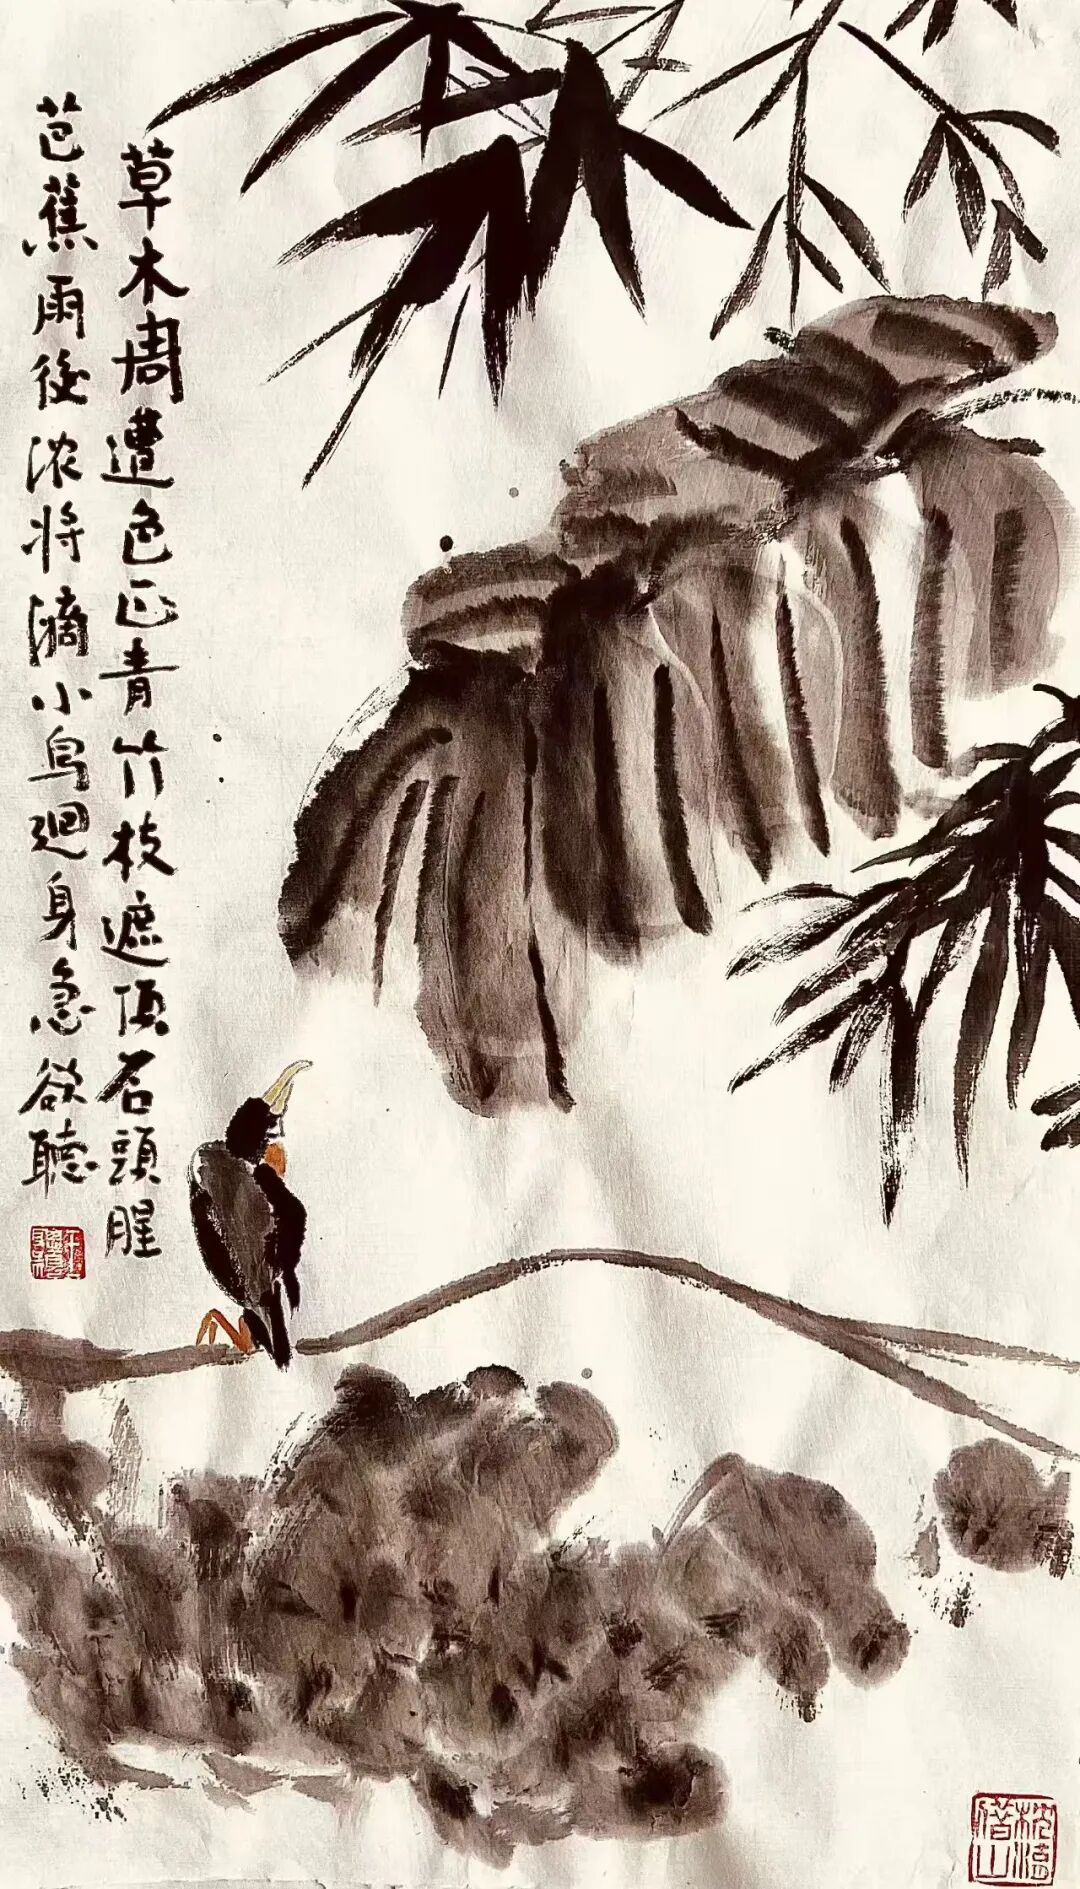 草木周遭色正青竹枝遮顶石頭腥
芭蕉雨後浓将滴小鸟迴身急欲聽